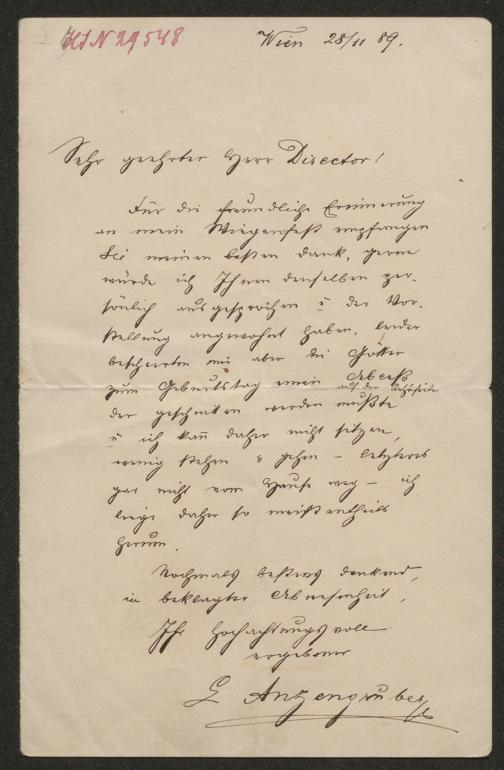 HIN 29548
Wien 28/11 89.
Sehr geehrter Herr Director!
Für die freundliche Erinnerung
an mein Wiegenfest empfangen
Sie meinen besten Dank, gerne
würde ich Ihnen denselben per-
sönlich ausgesprochen u der Vor-
stellung angewohnt haben, leider
bescheerten mir aber die Götter
zum Geburtstag einen Abceß
auf der Sitzseite
der geschnitten werden mußte
u ich kañ daher nicht sitzen,
wenig stehen & gehen – letzteres
gar nicht vom Hause weg – ich
liege daher so meistentheils
herum.
Nochmals bestens dankend,
in beklagter Abwesenheit,
Ihr hochachtungsvoll
ergebener
L Anzengruber